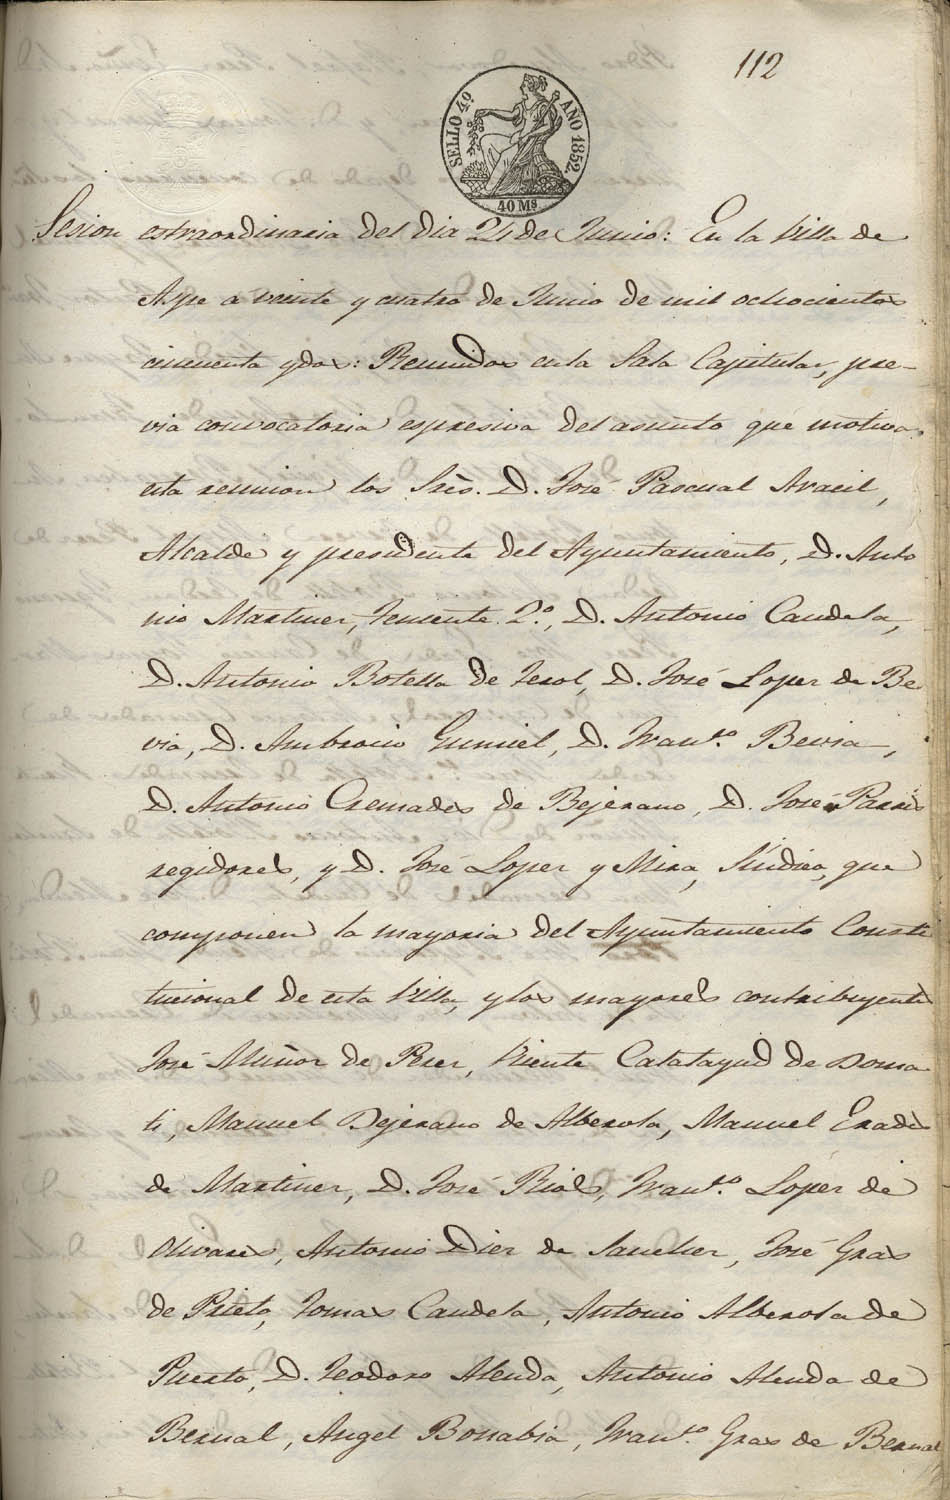 112
SELLO 4º AÑO 1852.
40 Ms
Sesion extraordinaria del dia 24 de Junio: En la Villa de
Aspe a veinte y cuatro de Junio de mil ochocientos
cincuenta y dos: Reunidos en la Sala Capitular, pre-
via convocatoria espresiva del asunto que motiva
esta reunion los Sres. D. José Pascual Aracil,
Alcalde y presidente del Ayuntamiento, D. Anto
nio Martinez, Teniente 2º, D. Antonio Candela,
D. Antonio Botella de Terol, D. José Lopez de Be
via, D. Ambrocio Gumiel, D. Franco. Bevia,
D. Antonio Cremades de Bejerano, D. José Parrés
regidores, y D. José Lopez y Mira, Síndico, que
componen la mayoria del Ayuntamiento Consti
tucional de esta Villa, y los mayores contribuyentes
José Muñoz de Perez, Vicente Calatayud de Dona
ti, Manuel Bejerano de Alberola, Manuel Erades
de Martinez, D. José Rial, Franco. Lopez de
Olivares, Antonio Diez de Sanchez, José Gras
de Prieto, Tomas Candela, Antonio Alberola de
Puerto, D. Teodoro Alenda, Antonio Alenda de
Bernal, Angel Bonabia, Franco. Gras de Bernal